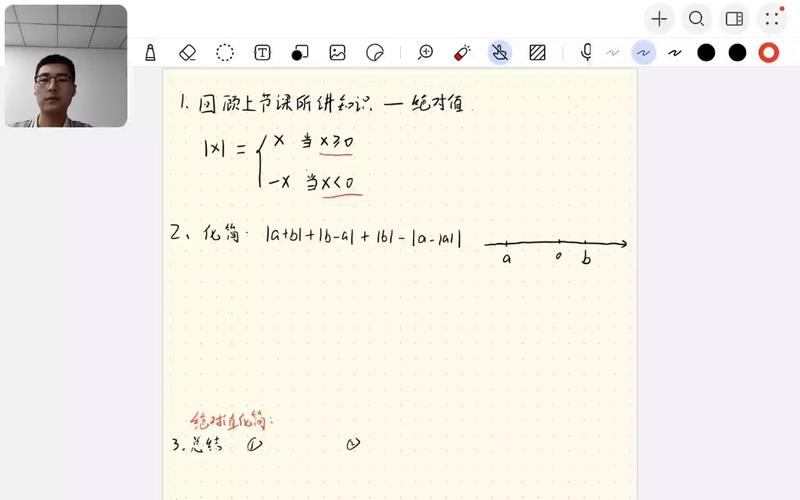 1. 回顾上节课所讲知识 — 绝对值
|x| = { x 当 x≥0
-x 当 x<0
2、化简: |a+b|+|b-a|+|b|-|a-|a||
a 0 b
绝对值化简:
3.总结 ① ②